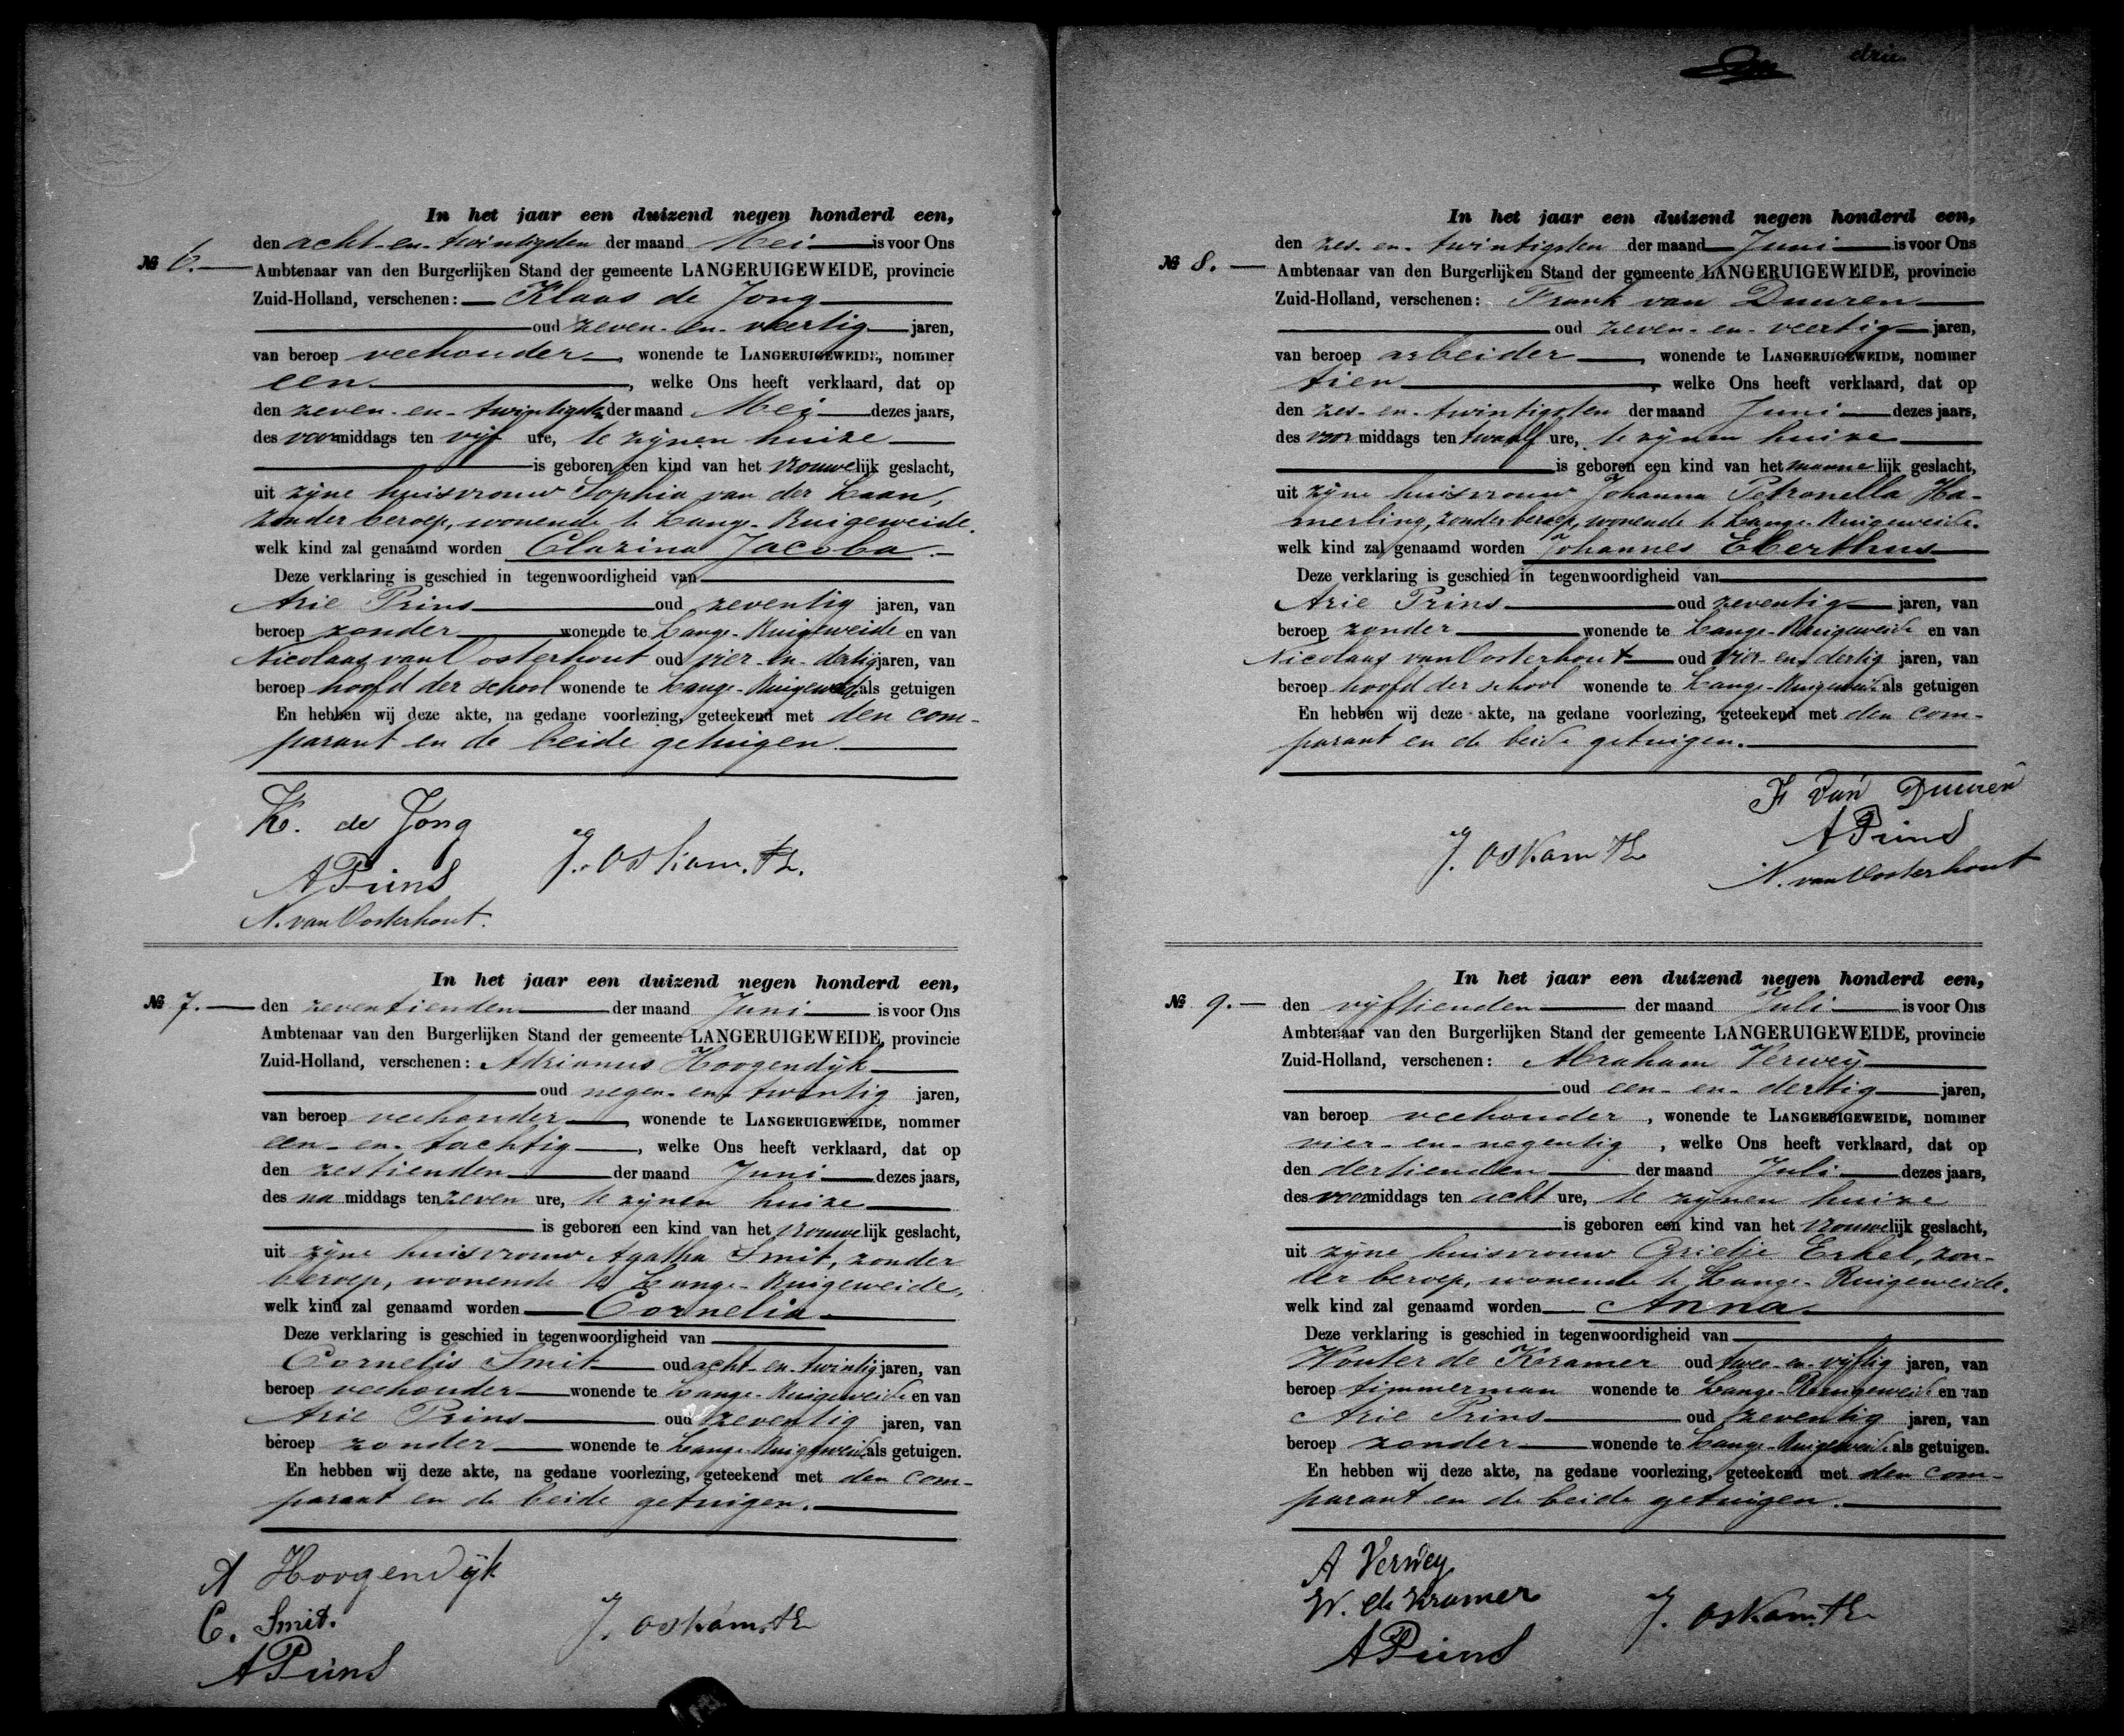 In het jaar een duizend negen honderd een,
den acht-en-twintigsten der maand Mei is voor Ons
№ 6. Ambtenaar van den Burgerlijken Stand der gemeente LANGERUIGEWEIDE, provincie
Zuid-Holland, verschenen: Klaas de Jong
oud zeven-en-veertig jaren,
van beroep veehouder, wonende te LANGERUIGEWEIDE, nommer
een, welke Ons heeft verklaard, dat op
den zeven-en-twintigsten der maand Mei dezes jaars,
des voormiddags ten vijf ure, te zijnen huize
is geboren een kind van het vrouwelijk geslacht,
uit zijne huisvrouw Sophia van der Laan,
zonder beroep, wonende te Lange-Ruigeweide.
welk kind zal genaamd worden Clazina Jacoba.
Deze verklaring is geschied in tegenwoordigheid van
Arie Prins oud zeventig jaren, van
beroep zonder wonende te Lange-Ruigeweide en van
Nicolaas van Oosterhout oud vier-en-dertig jaren, van
beroep hoofd der school wonende te Lange-Ruigeweide als getuigen
En hebben wij deze akte, na gedane voorlezing, geteekend met den com-
parant en de beide getuigen.
K. de Jong
J. Oskam. Az.
A Prins
N. van Oosterhout.
In het jaar een duizend negen honderd een,
№ 7. den zeventienden der maand Juni is voor Ons
Ambtenaar van den Burgerlijken Stand der gemeente LANGERUIGEWEIDE, provincie
Zuid-Holland, verschenen: Adrianus Hoogendijk
oud negen-en-twintig jaren,
van beroep veehouder, wonende te LANGERUIGEWEIDE, nommer
een-en-tachtig, welke Ons heeft verklaard, dat op
den zestienden der maand Juni dezes jaars,
des na middags ten zeven ure, te zijnen huize
is geboren een kind van het vrouwelijk geslacht,
uit zijne huisvrouw Agatha Smit, zonder
beroep, wonende te Lange-Ruigeweide,
welk kind zal genaamd worden Cornelia
Deze verklaring is geschied in tegenwoordigheid van
Cornelis Smit oud acht-en-twintig jaren, van
beroep veehouder wonende te Lange-Ruigeweide en van
Arie Prins oud zeventig jaren, van
beroep zonder wonende te Lange-Ruigeweide als getuigen.
En hebben wij deze akte, na gedane voorlezing, geteekend met den com-
parant en de beide getuigen.
A Hoogendijk
C. Smit.
J. Oskam. Az
A Prins
drie.
In het jaar een duizend negen honderd een,
den zes-en-twintigsten der maand Juni is voor Ons
№ 8. Ambtenaar van den Burgerlijken Stand der gemeente LANGERUIGEWEIDE, provincie
Zuid-Holland, verschenen: Frank van Duuren
oud zeven-en-veertig jaren,
van beroep arbeider, wonende te LANGERUIGEWEIDE, nommer
tien, welke Ons heeft verklaard, dat op
den zes-en-twintigsten der maand Juni dezes jaars,
des voor middags ten twaalf ure, te zijnen huize
is geboren een kind van het manne lijk geslacht,
uit zijne huisvrouw Johanna Petronella Ha-
merling, zonder beroep, wonende te Lange-Ruigeweide.
welk kind zal genaamd worden Johannes Eberthus
Deze verklaring is geschied in tegenwoordigheid van
Arie Prins oud zeventig jaren, van
beroep zonder wonende te Lange-Ruigeweide en van
Nicolaas van Oosterhout oud vier-en-dertig jaren, van
beroep hoofd der school wonende te Lange-Ruigeweide als getuigen
En hebben wij deze akte, na gedane voorlezing, geteekend met den com-
parant en de beide getuigen.
F van Duuren
A Prins
J. Oskam Az
N. van Oosterhout
In het jaar een duizend negen honderd een,
№ 9. den vijftienden der maand Juli is voor Ons
Ambtenaar van den Burgerlijken Stand der gemeente LANGERUIGEWEIDE, provincie
Zuid-Holland, verschenen: Abraham Verweij
oud een-en-dertig jaren,
van beroep veehouder, wonende te LANGERUIGEWEIDE, nommer
vier-en-negentig, welke Ons heeft verklaard, dat op
den dertienden der maand Juli dezes jaars,
des voormiddags ten acht ure, te zijnen huize
is geboren een kind van het vrouwelijk geslacht,
uit zijne huisvrouw Grietje Erkel, zon-
der beroep, wonende te Lange-Ruigeweide.
welk kind zal genaamd worden Anna.
Deze verklaring is geschied in tegenwoordigheid van
Wouter de Kramer oud twee-en-vijftig jaren, van
beroep timmerman wonende te Lange-Ruigeweide en van
Arie Prins oud zeventig jaren, van
beroep zonder wonende te Lange-Ruigeweide als getuigen.
En hebben wij deze akte, na gedane voorlezing, geteekend met den com-
parant en de beide getuigen.
A Verweij
W. de Kramer
J. Oskam. Az
A Prins